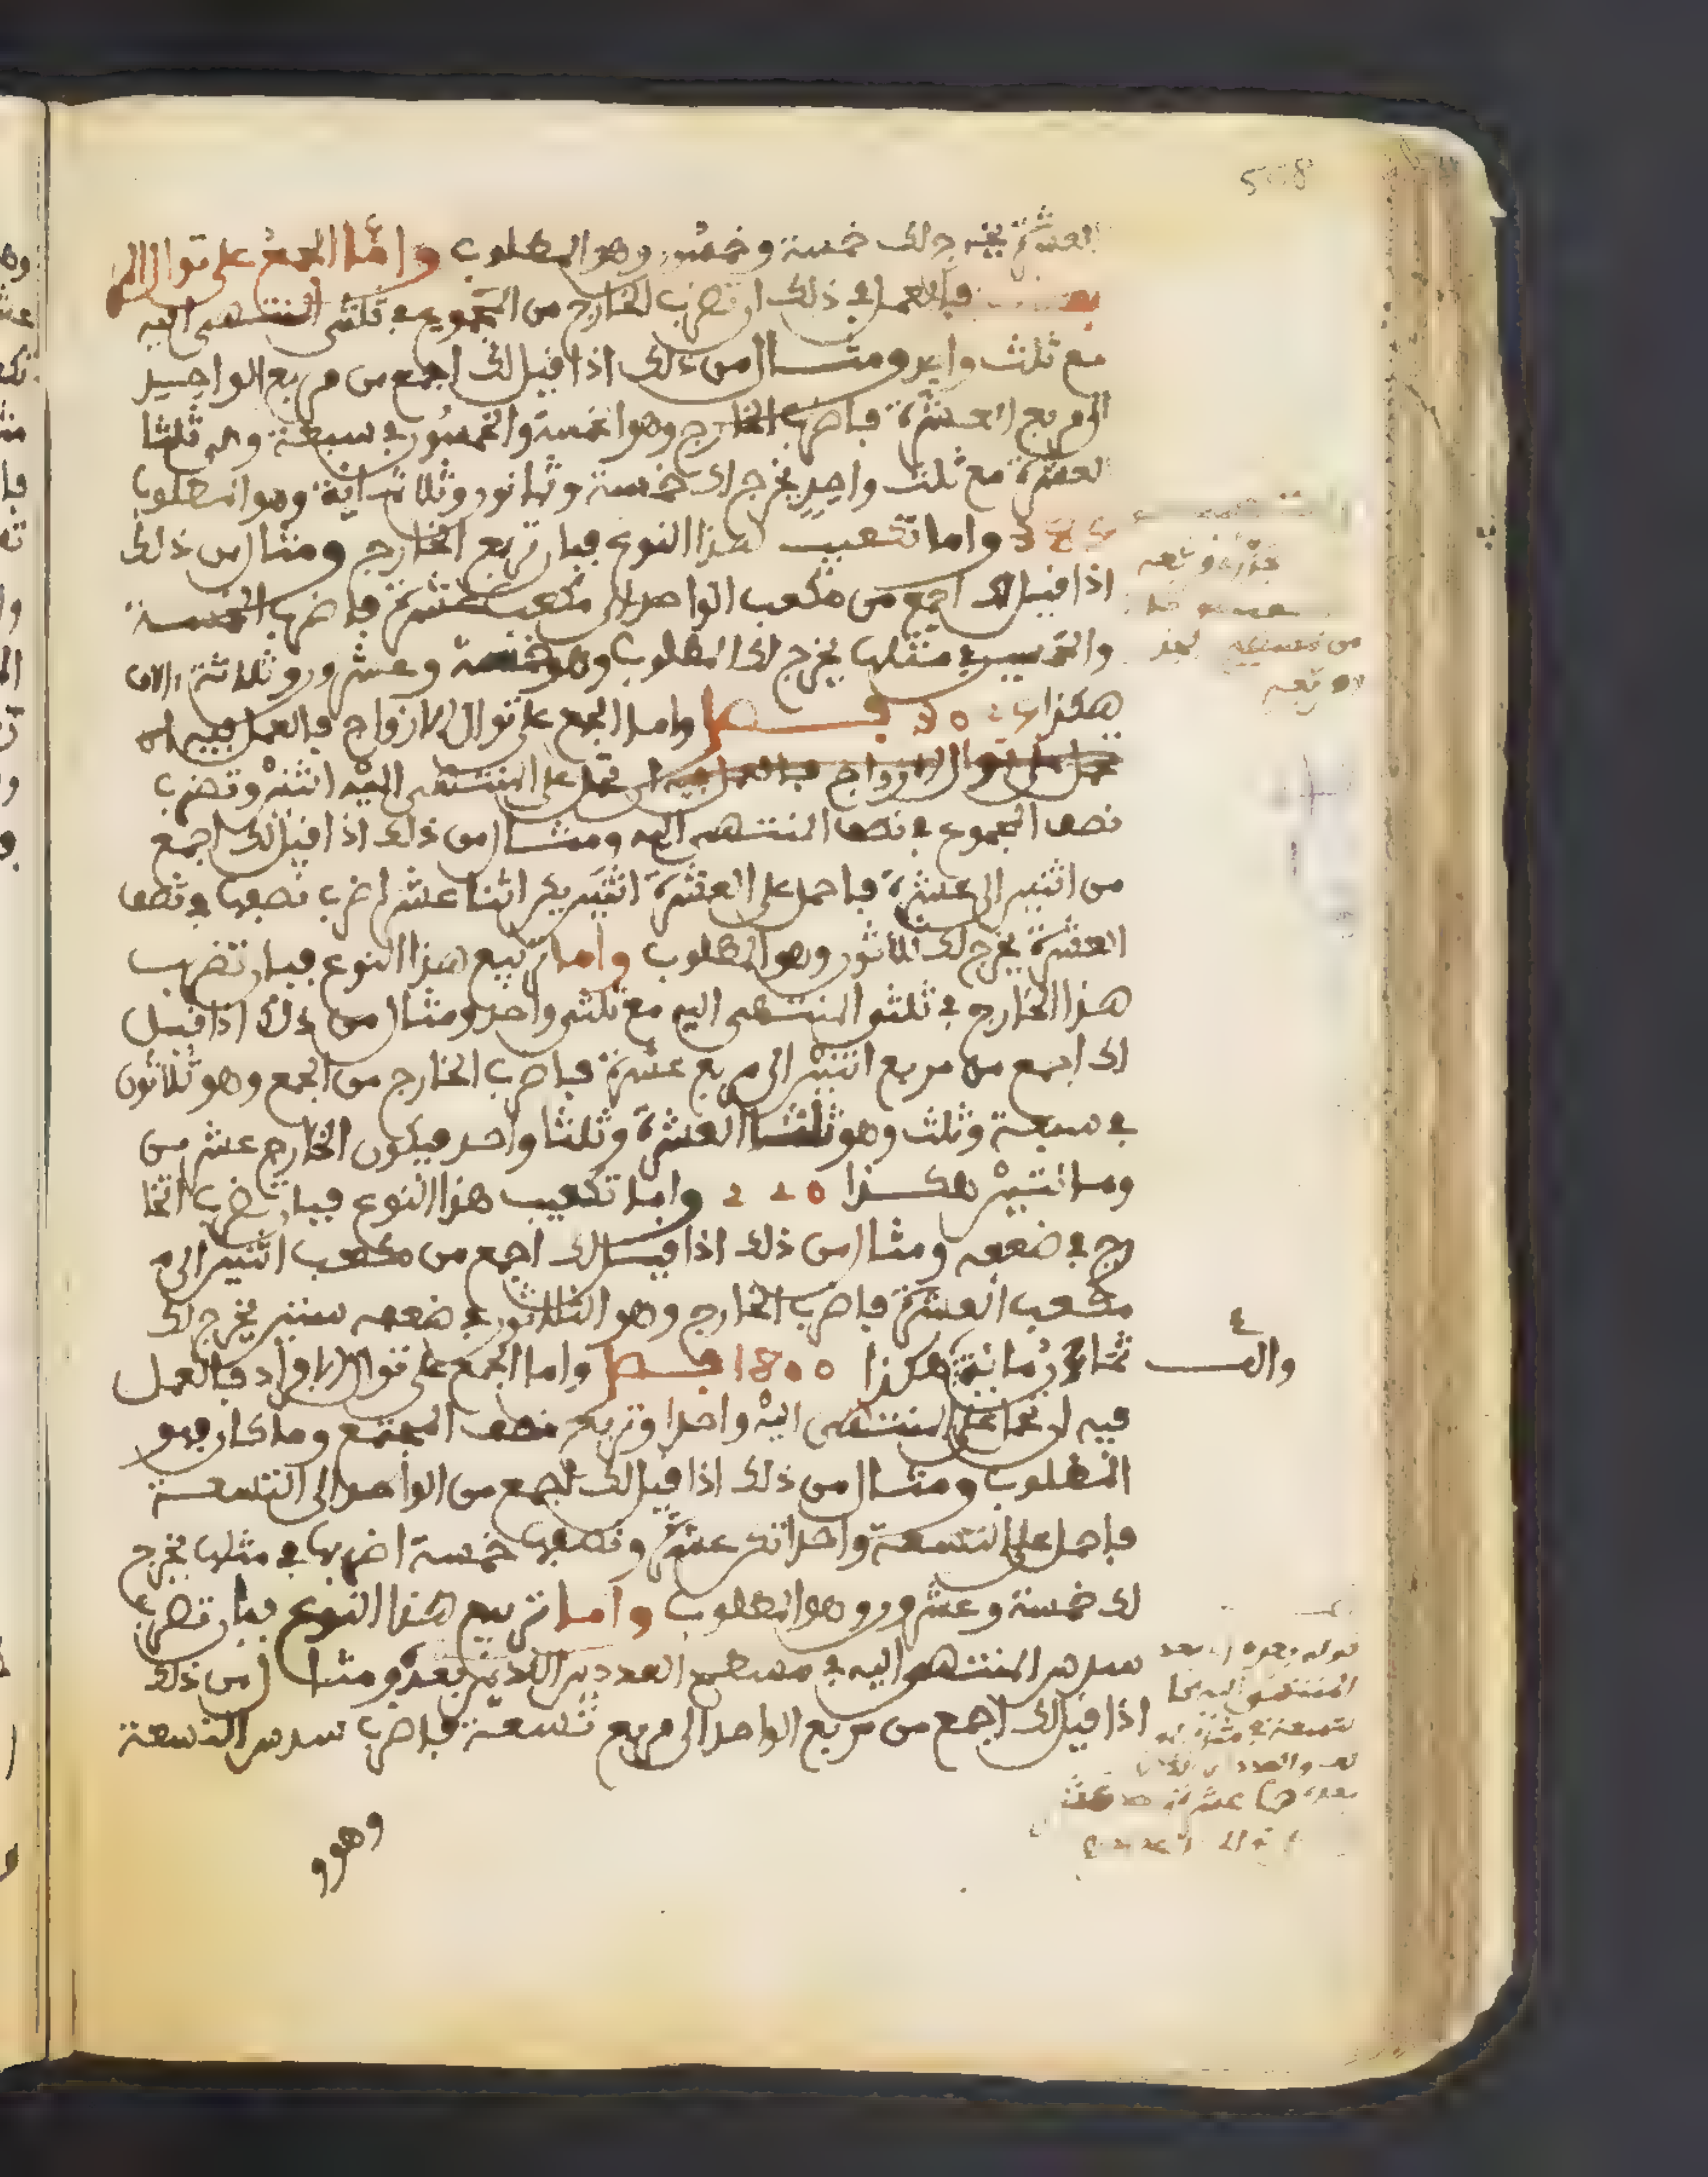 508
العشرة يخرج لك خمسة وخمسون وهو المطلوب وأما الجمع على توالي الم
فالعمل في ذلك ان تضرب الخارج من المجموع في ثلثي المنتهى اليه
مع ثلث واحد ومثال من ذلك اذا قيل لك اجمع من مربع الواحد
الى مربع العشرة فاضرب الخارج وهو الخمسة والخمسون في سبعة وهي ثلثا
العشرة مع ثلث واحد يخرج لك خمسة وثمانون وثلاثماية وهو المطلوب
385 واما تكعيب هذا النوع فبان تربع الخارج ومثال من ذلك
اذا قيل لك اجمع من مكعب الواحد الى مكعب عشرة فاضرب الخمسة
والخمسين في مثلها يخرج لك المطلوب وهو خمسة وعشرون وثلاثة الاف
هكذا 3025 فصل واما الجمع على توالي الازواج فالعمل فيه ان
تحمل على توالي الازواج فالعمل فيه ان تحمل على المنتهى اليه اثنين وتضرب
نصف المجموع في نصف المنتهى اليه ومثال من ذلك اذا قيل لك اجمع
من اثنين الى عشرة فاحمل على العشرة اثنين يكن اثنا عشر اضرب نصفها في نصف
العشرة يخرج لك ثلاثون وهو المطلوب واما تربيع هذا النوع فبان تضرب
هذا الخارج في ثلثي المنتهى اليه مع ثلثي واحد ومثال من ذلك اذا قيل
لك اجمع من مربع اثنين الى مربع عشرة فاضرب الخارج من الجمع وهو ثلاثون
في سبعة وثلث وهو ثلثا العشرة وثلثا واحد فيكون الخارج عشرين
ومائتين هكذا 220 واما تكعيب هذا النوع فبان تضرب الخا
رج في ضعفه ومثال من ذلك اذا قيل لك اجمع من مكعب اثنين الى م
مكعب العشرة فاضرب الخارج وهو الثلاثون في ضعفه ستين يخرج لك
ثمان مائة هكذا 1800 فصل واما الجمع على توالي الافراد فالعمل
والف
فيه ان تحمل على المنتهى اليه واحدا وتربع نصف المجتمع وما كان فهو
المطلوب ومثال من ذلك اذا قيل لك اجمع من الواحد الى التسعة
فاحمل على التسعة واحدا تكن عشرة ونصفها خمسة اضربها في مثلها يخرج
لك خمسة وعشرون وهو المطلوب واما تربيع هذا النوع فبان تضرب
سدس المنتهى اليه في مسطح العددين اللذين بعده ومثال من ذلك
اذا قيل لك اجمع من مربع الواحد الى مربع تسعة فاضرب سدس التسعة
وهو و